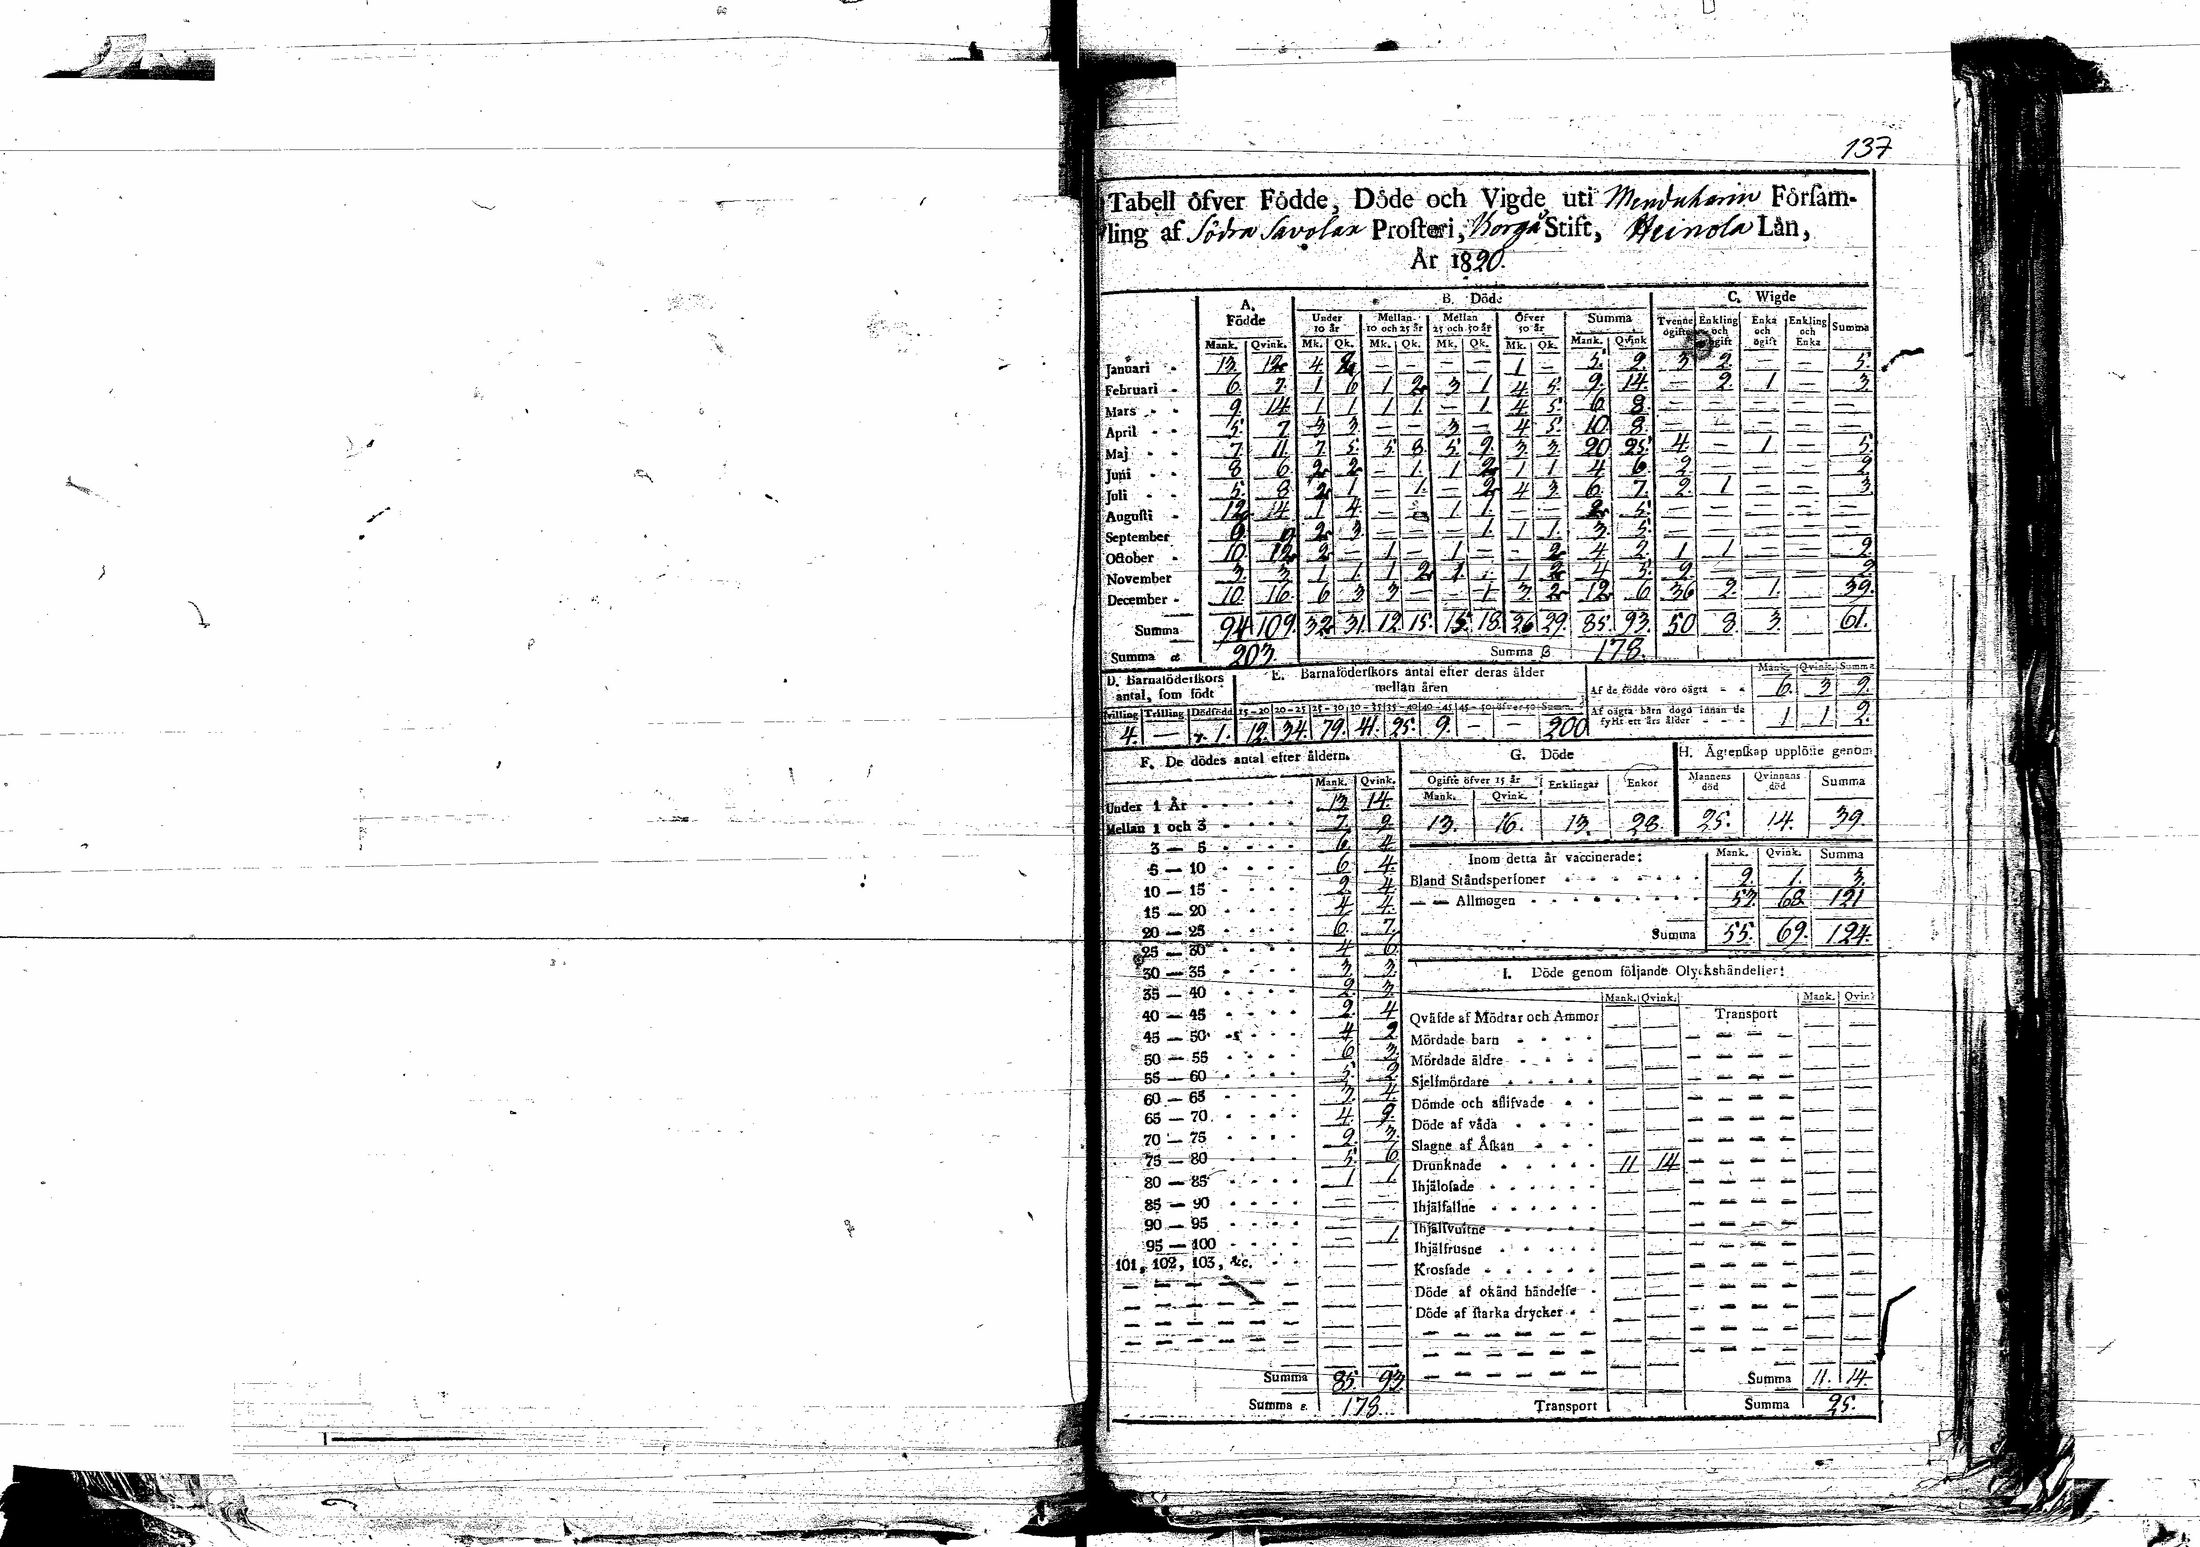 137
Tabell öfver Födde, Döde och Vigde uti Menduharin Församling
af Södra Savolax Prosteri, Borgå Stift, Heinola Län,
År 1820.
A. Födde B. Döde C. Wigde
Under 10 år Mellan 10 och 25 år Mellan 25 och 50 år Öfver 50 år Summa Tvenne ogifte Enkling och ogift Enka och ogift Enkling och Enka Summa
Mank. Qvink. Mk. Qk. Mk. Qk. Mk. Qk. Mk. Qk. Mank. Qvink
Januari 13 12 4 2 — — — — 1 — 5. 2. 3 2 — — 5.
Februari 6. 7. 1 6 1 2 3 1 4 5. 9. 14. — 2 1 — 3.
Mars 9 14 1 1 1 1. — 1. 4 5. 6 8. — — — — —
April 5. 7 3 3 — — 3 — 4 5. 10 8. — — — — —
Maj 7. 11. 7 5. 5 8. 5. 9. 3. 3. 20 25. 4. — 1 — 5.
Juni 8 6 2 2 — 1. 1 2 1 1 4 6 2 — — — 2
Juli 5. 8 2 1 — 1. — 2 4 3. 6. 7. 2. 1 — — 3.
Augusti 12 14 1 4. — — 1 1. — — 2 5. — — — — —
September 9. 9 2 3. — — — 1. 1 1. 3. 5. — — — — —
October 10. 12 2 — 1 — 1 — — 2 4 2 1 1 — — 2
November 3. 3. 1 1. 1 2 1. 1 2 4 5. 2. — — — 2
December 10. 16 6 3 3 — — 1 3. 2 12 6 36 2. 1. — 39.
Summa 94 109. 32 31. 12 15. 15. 18. 26 29. 85. 93. 50 8. 3. 61.
Summa α 203. Summa β 178.
D. Barnaföderskors antal, som födt
Tvilling Trilling Dödfödd
4. — 1.
E. Barnaföderskors antal efter deras ålder mellan åren
15-20 20-25 25-30 30-35 35-40 40-45 45-50 öfver 50 Summa
12. 34. 79. 41. 25. 9. — — 200
Mank. Qvink. Summa
Af de födde voro oägta 6. 3 9.
Af oägta barn dogo innan de fyllt ett års ålder 1 1 2.
F. De dödes antal efter åldern.
Mank. Qvink.
Under 1 År 13 14.
Mellan 1 och 3 7. 9.
3 — 5 6 4
5 — 10 6 4.
10 — 15 2 4
15 — 20 4 4.
20 — 25 6. 7.
25 — 30 4 6
30 — 35 3. 3.
35 — 40 2. 3.
40 — 45 2. 4
45 — 50 4 2
50 — 55 6 3.
55 — 60 5. 2
60 — 65 3. 4.
65 — 70 4. 9.
70 — 75 2. 3.
75 — 80 5. 6
80 — 85 1 1.
85 — 90 — —
90 — 95 — —
95 — 100 — 1.
101, 102, 103, &c. — —
Summa 85. 93.
Summa ε. 178.
G. Döde
Ogifte öfver 15 år Enklingar Enkor
Mank. Qvink.
13. 16. 13. 28.
H. Ägtenskap upplöste genom
Mannens död Qvinnans död Summa
25. 14. 39.
Inom detta år vaccinerade: Mank. Qvink. Summa
Bland Ståndspersoner 2. 1. 3.
— — Allmogen 53. 68. 121
Summa 55. 69. 124.
I. Döde genom följande Olyckshändelser:
Mank. Qvink. Mank. Qvink
Qväfde af Mödrar och Ammor — — Transport — —
Mördade barn
Mördade äldre
Sjelfmördare
Dömde och aflifvade
Döde af våda
Slagne af Åskan
Drunknade 11 14
Ihjälosade
Ihjälfallne
Ihjälsvultne
Ihjälfrusne
Krossade
Döde af okänd händelse
Döde af starka drycker
Summa 11. 14.
Transport Summa 25.